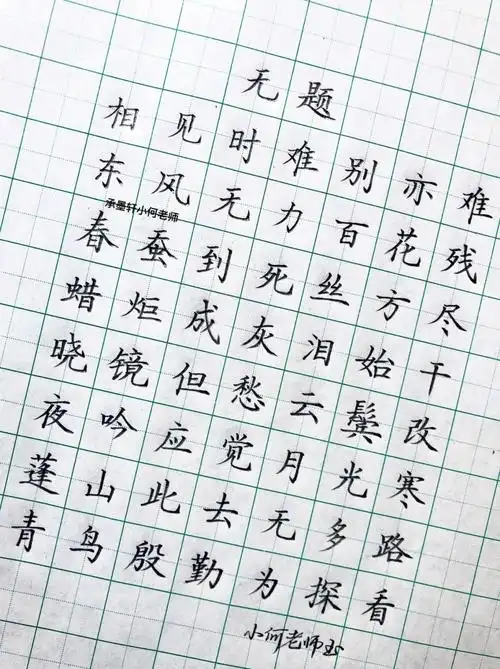 无题
相见时难别亦难
东风无力百花残
承墨轩小何老师
春蚕到死丝方尽
蜡炬成灰泪始干
晓镜但愁云鬓改
夜吟应觉月光寒
蓬山此去无多路
青鸟殷勤为探看
小何老师